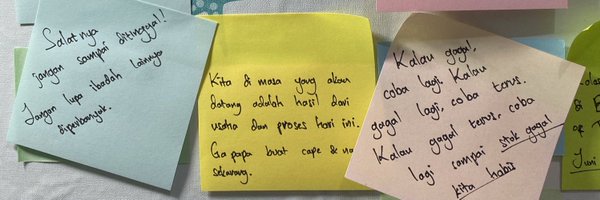 Salatnya
jangan sampai ditinggal!!
Jangan lupa ibadah lainnya
diperbanyak.
Kita di masa yang akan
datang adalah hasil dari
usaha dan proses hari ini.
Gapapa buat cape &
sekarang.
Kalau gagal,
coba lagi. Kalau
gagal lagi, coba terus.
Kalau gagal terus, coba
lagi sampai stok gagal
kita habis